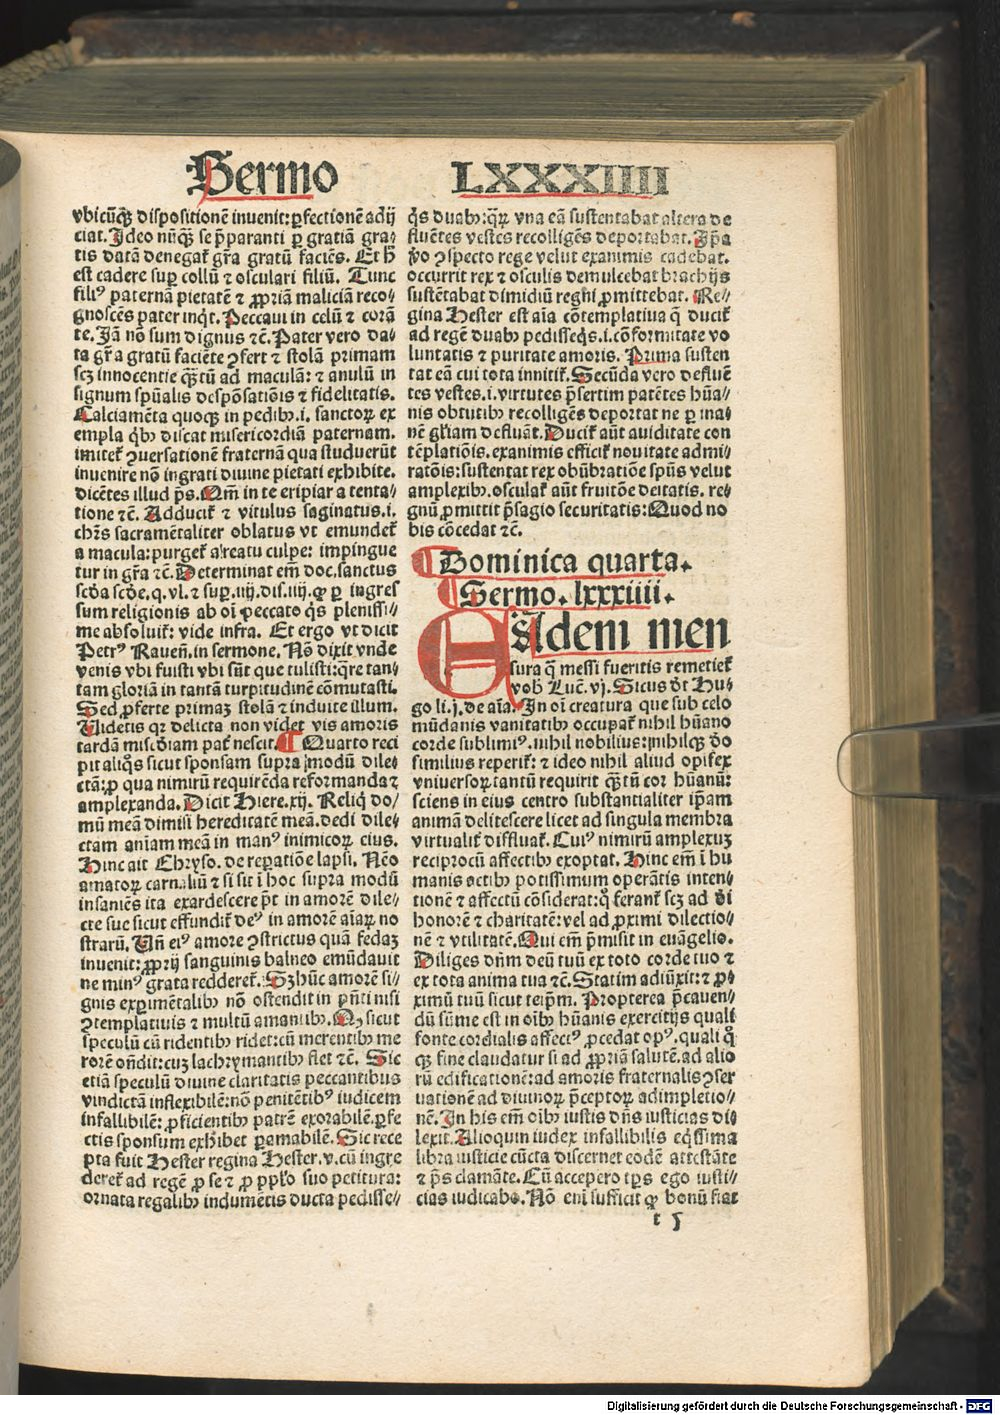 Sermo LXXXIIII
vbicūqꝫ dispositionē inuenit: ꝑfectionē adij
ciat. Ideo nūqꝫ se p̄paranti ꝑ gratiā gra⸗
tis datā denegat̄ gr̄a gratū faciēs. Et h̄
est cadere suꝑ collū ⁊ osculari filiū. Tunc
filiꝰ paternā pietatē ⁊ ꝓpriā maliciā reco⸗
gnoscēs pater inq̇t. Peccaui in celū ⁊ corā
te. Iā nō sum dignus ⁊c̄. Pater vero da⸗
ta gr̄a gratū faciēte ꝯfert ⁊ stolā primam
scꝫ innocentie qꝫ̄tū ad maculā: ⁊ anulū in
signum sp̄ualis despōsatiōis ⁊ fidelitatis.
Calciamēta quoqꝫ in pedibꝫ .i. sanctoꝝ ex
empla q̇bꝫ discat misericordiā paternam.
imitet̄ ꝯuersationē fraternā qua studuerūt
inuenire nō ingrati diuine pietati exhibite.
dicētes illud p̄s. Qm̄ in te eripiar a tenta⸗
tione ⁊c̄. Adducit̄ ⁊ vitulus saginatus .i.
chr̄s sacramētaliter oblatus vt emundet̄
a macula: purget̄ a reatu culpe: impingue
tur in gr̄a ⁊c̄. Determinat em̄ doc. sanctus
scd̄a scd̄e. q. vl. ⁊ suꝑ .iiij. dis. iiij. ꝙ ꝑ ingres
sum religionis ab oī peccato q̇s plenissi⸗
me absoluit̄: vide infra. Et ergo vt dicit
Petrꝰ Rauen̄. in sermone. Nō dixit vnde
venis vbi fuisti vbi sūt que tulisti: q̄re tan⸗
tam gloriā in tantā turpitudinē cōmutasti.
Sed ꝓferte primaꝫ stolā ⁊ induite illum.
Uidetis qꝛ delicta non videt vis amoris
tardā mīscd̄iam pat̄ nescit. ¶ Quarto reci
pit aliq̇s sicut sponsam supra modū dile⸗
ctā: ꝓ qua nimirū requirēda reformanda ⁊
amplexanda. Dicit Hiere. xij. Reliq̇ do⸗
mū meā dimisi hereditatē meā. dedi dile⸗
ctam aniam meā in manꝰ inimicoꝝ eius.
Hinc ait Chryso. de reꝑatiōe lapsi. Nēo
amatoꝝ carnaliū ⁊ si sit ī hoc supra modū
insaniēs ita exardescere pt̄ in amorē dile⸗
cte sue sicut effundit̄ deꝰ in amorē aīaꝝ no
straꝝ. Un̄ eiꝰ amore ꝯstrictus quā fedaꝫ
inuenit: ꝓprij sanguinis balneo emūdauit
ne minꝰ grata redderet̄. Sꝫ hūc amorē si⸗
gnis exꝑimētalibꝫ nō ostendit in p̄nti nisi
ꝯtemplatiuis ⁊ multū amantibꝫ. Nā sicut
speculū cū ridentibꝫ ridet: cū merentibꝫ me
rorē on̄dit: cuꝫ lachrymantibꝫ flet ⁊c̄. Sic
etiā speculū diuine claritatis peccantibus
vindictā inflexibilē: nō penitētibꝰ iudicem
infallibilē: ꝓficientibꝫ patrē exorabilē. ꝑfe
ctis sponsum exhibet ꝑamabilē. Sic rece
pta fuit Hester regina Hester. v. cū ingre
deret̄ ad regē ꝓ se ⁊ ꝓ pplo suo petitura:
ornata regalibꝫ indumētis ducta pedisse⸗
q̇s duabꝫ: q̄ꝝ vna eā sustentabat altera de
fluētes vestes recolligēs deportabat. Ip̄a
v̊o ꝯspecto rege velut exanimis cadebat.
occurrit rex ⁊ osculis demulcebat brachijs
sustētabat dimidiū regni ꝓmittebat. Re⸗
gina Hester est aīa cōtemplatiua q̄ ducit̄
ad regē duabꝫ pedisseq̇s .i. cōformitate vo
luntatis ⁊ puritate amoris. Prima susten
tat eā cui tota innitit̄. Secūda vero defluē
tes vestes .i. virtutes p̄sertim patētes hūa⸗
nis obtutibꝫ recolligēs deportat ne ꝑ ina⸗
nē gl̄iam defluāt. Ducit̄ aūt auiditate con
tēplatiōis. exanimis efficit̄ nouitate admi⸗
ratōis: sustentat rex obūbratiōe spūs velut
amplexibꝫ. osculat̄ aūt fruitōe deitatis. re⸗
gnū ꝓmittit p̄sagio securitatis: Quod no
bis cōcedat ⁊c̄.
¶ Dominica quarta.
¶ Sermo. lxxxiiii.
EAdem men
sura q̄ messi fueritis remetiet̄
vobꝫ Luc̄. vj. Sicut dt̄ Hu⸗
go li. j. de aīa. In oī creatura que sub celo
mūdanis vanitatibꝫ occupat̄ nihil hūano
corde sublimiꝰ. nihil nobilius: nihilqꝫ deo
similius reperit̄: ⁊ ideo nihil aliud opifex
vniuersoꝝ tantū requirit qꝫ̄tū cor hūanū:
sciens in eius centro substantialiter ip̄am
animā delitescere licet ad singula membra
virtualit̄ diffluat̄. Cuiꝰ nimirū amplexuꝫ
reciprocū affectibꝫ exoptat. Hinc em̄ ī hu
manis actibꝫ potissimum operātis inten⸗
tionē ⁊ affectū cōsiderat: q̇ ferant̄ scꝫ ad dei
honorē ⁊ charitatē: vel ad ꝓximi dilectio⸗
nē ⁊ vtilitatē. Qui em̄ p̄misit in euāgelio.
Diliges dn̄m deū tuū ex toto corde tuo ⁊
ex tota anima tua ⁊c̄. Statim adiūxit: ⁊ ꝓ⸗
ximū tuū sicut teip̄m. Propterea p̄cauen⸗
dū sūme est in oībꝫ hūanis exercitijs quali
fonte cordialis affectꝰ ꝓcedat opꝰ. quali q̊
qꝫ fine claudatur si ad ꝓpriā salutē. ad alio
rū edificationē: ad amoris fraternalis ꝯser
uationē ad diuinoꝝ p̄ceptoꝝ adimpletio⸗
nē. In his em̄ oībꝫ iustis dn̄s iusticias di⸗
lexit. Alioquin iudex infallibilis eq̇ssima
libra iusticie cūcta discernet eodē attestāte
⁊ p̄s clamāte. Cū accepero tp̄s ego iusti⸗
cias iudicabo. Nō eni sufficit ꝙ bonū fiat
t 5
Digitalisierung gefördert durch die Deutsche Forschungsgemeinschaft - DFG